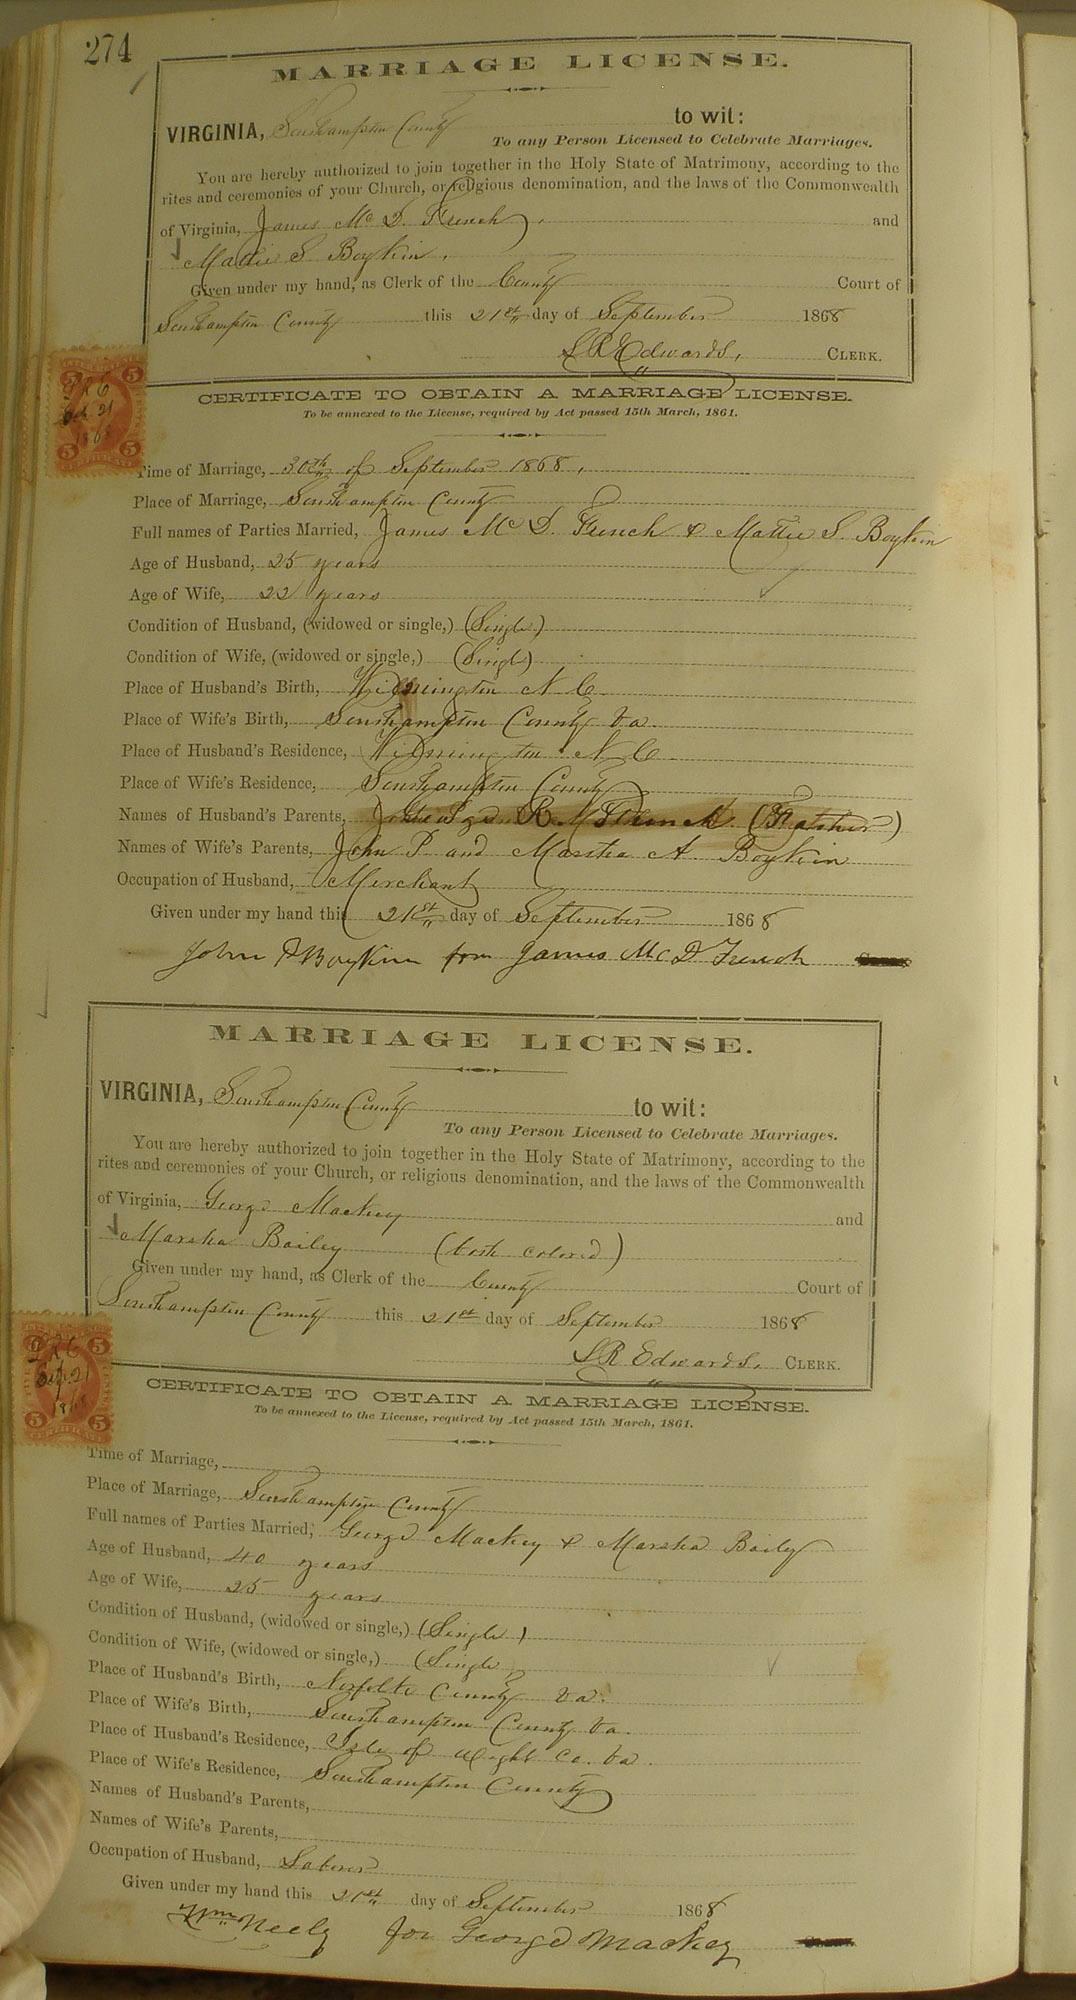 274
MARRIAGE LICENSE.
VIRGINIA, Southampton County to wit:
To any Person Licensed to Celebrate Marriages.
You are hereby authorized to join together in the Holy State of Matrimony, according to the
rites and ceremonies of your Church, or religious denomination, and the laws of the Commonwealth
of Virginia, James McD. French and
Mattie S. Boykin.
Given under my hand, as Clerk of the County Court of
Southampton County this 21st day of September 1868
LR Edwards, CLERK.
5 5
LRE
Sept. 21
1868
5 5
CERTIFICATE
CERTIFICATE TO OBTAIN A MARRIAGE LICENSE.
To be annexed to the License, required by Act passed 15th March, 1861.
Time of Marriage, 30th of September 1868,
Place of Marriage, Southampton County
Full names of Parties Married, James McD. French & Mattie S. Boykin
Age of Husband, 25 years
Age of Wife, 22 years
Condition of Husband, (widowed or single,) (Single)
Condition of Wife, (widowed or single,) (Singl)
Place of Husband's Birth, Wilmington N.C.
Place of Wife's Birth, Southampton County Va.
Place of Husband's Residence, Wilmington N.C.
Place of Wife's Residence, Southampton County
Names of Husband's Parents, George R. French (Father)
Names of Wife's Parents, John P. and Martha A. Boykin
Occupation of Husband, Merchant
Given under my hand this 21st day of September 1868
John P Boykin for James McD French
MARRIAGE LICENSE.
VIRGINIA, Southampton County to wit:
To any Person Licensed to Celebrate Marriages.
You are hereby authorized to join together in the Holy State of Matrimony, according to the
rites and ceremonies of your Church, or religious denomination, and the laws of the Commonwealth
of Virginia, George Mackey and
Martha Bailey (both colored)
Given under my hand, as Clerk of the County Court of
Southampton County this 21st day of September 1868
LR Edwards, CLERK.
5
LRE
Sept. 21
1868
5 5
CERTIFICATE
CERTIFICATE TO OBTAIN A MARRIAGE LICENSE.
To be annexed to the License, required by Act passed 15th March, 1861.
Time of Marriage,
Place of Marriage, Southampton County
Full names of Parties Married, George Mackey & Martha Bailey
Age of Husband, 40 years
Age of Wife, 25 years
Condition of Husband, (widowed or single,) (Single)
Condition of Wife, (widowed or single,) (Single
Place of Husband's Birth, Norfolk County Va.
Place of Wife's Birth, Southampton County Va.
Place of Husband's Residence, Isle of Wight Co. Va.
Place of Wife's Residence, Southampton County
Names of Husband's Parents,
Names of Wife's Parents,
Occupation of Husband, Laborer
Given under my hand this 21st day of September 1868
Wm Neely for George Mackey